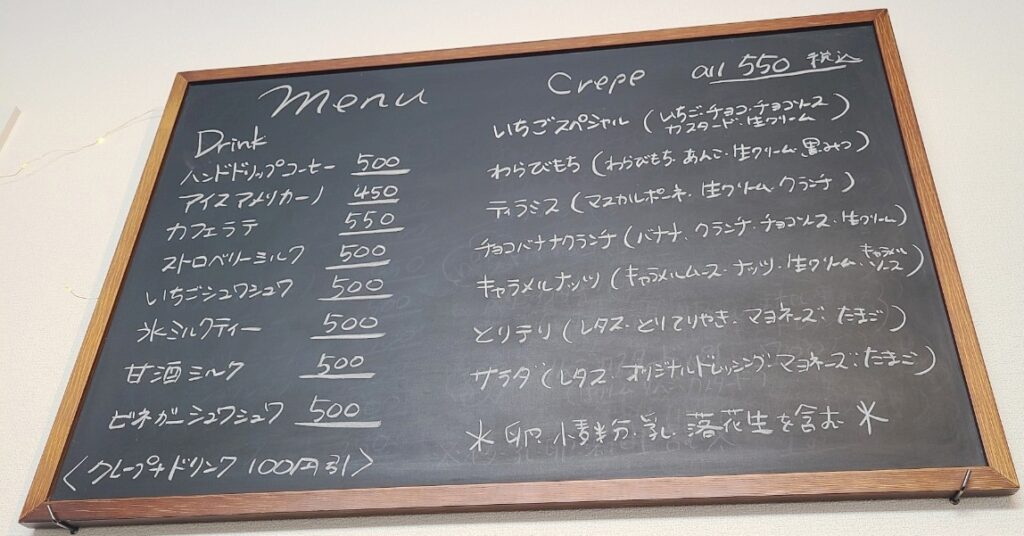 Menu
Drink
ハンドドリップコーヒー 500
アイスアメリカーノ 450
カフェラテ 550
ストロベリーミルク 500
いちごシュワシュワ 500
氷ミルクティー 500
甘酒ミルク 500
ビネガーシュワシュワ 500
〈クレープ+ドリンク 100円引〉
Crepe all 550 税込
いちごスペシャル (いちご・チョコ・チョコソース
カスタード・生クリーム)
わらびもち (わらびもち・あんこ・生クリーム・黒みつ)
ティラミス (マスカルポーネ・生クリーム・クランチ)
チョコバナナクランチ (バナナ、クランチ・チョコソース・生クリーム)
キャラメルナッツ (キャラメルムース・ナッツ・生クリーム・キャラメル
ソース)
とりテリ (レタス・とりてりやき・マヨネーズ・たまご)
サラダ (レタス・オリジナルドレッシング・マヨネーズ・たまご)
* 卵・小麦粉・乳・落花生を含む *